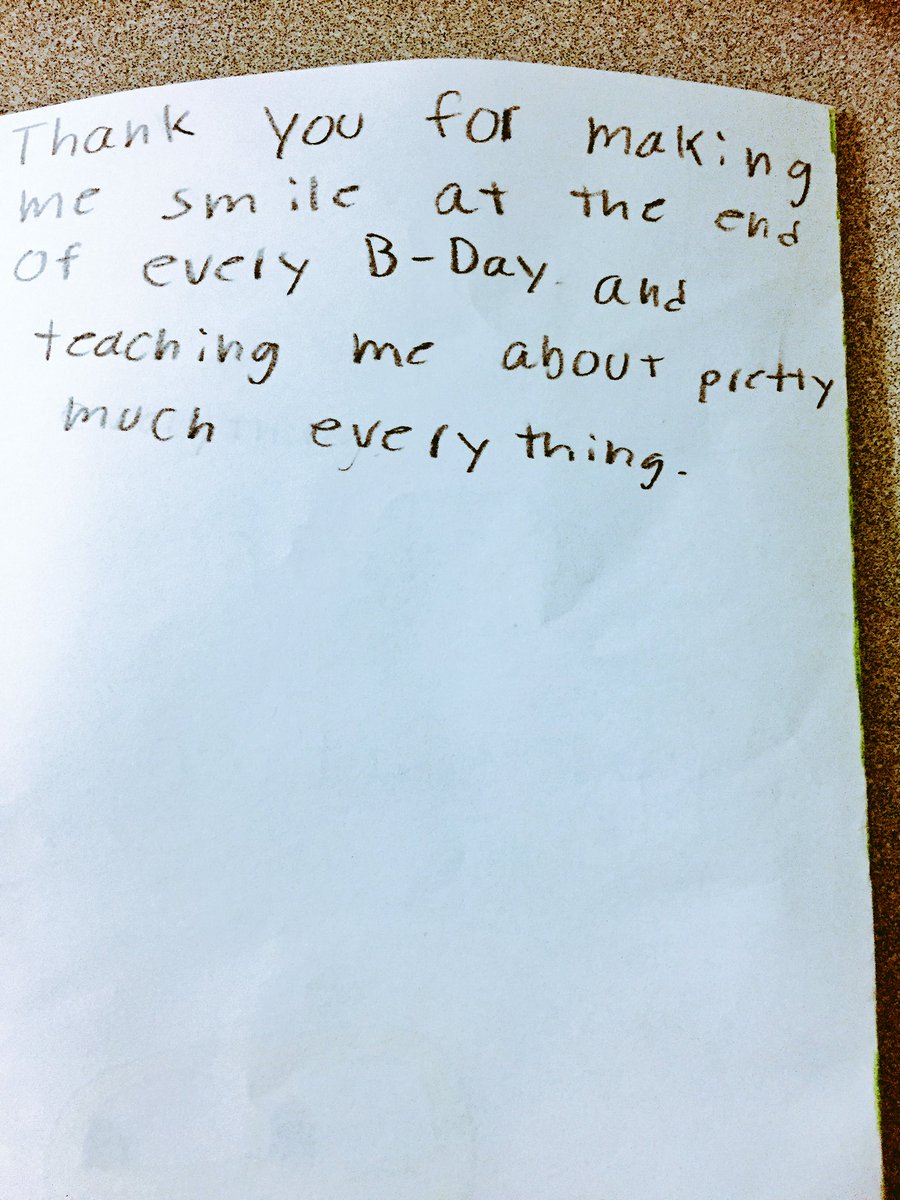 Thank you for making
me smile at the end
Of every B-Day and
teaching me about pretty
much every thing.